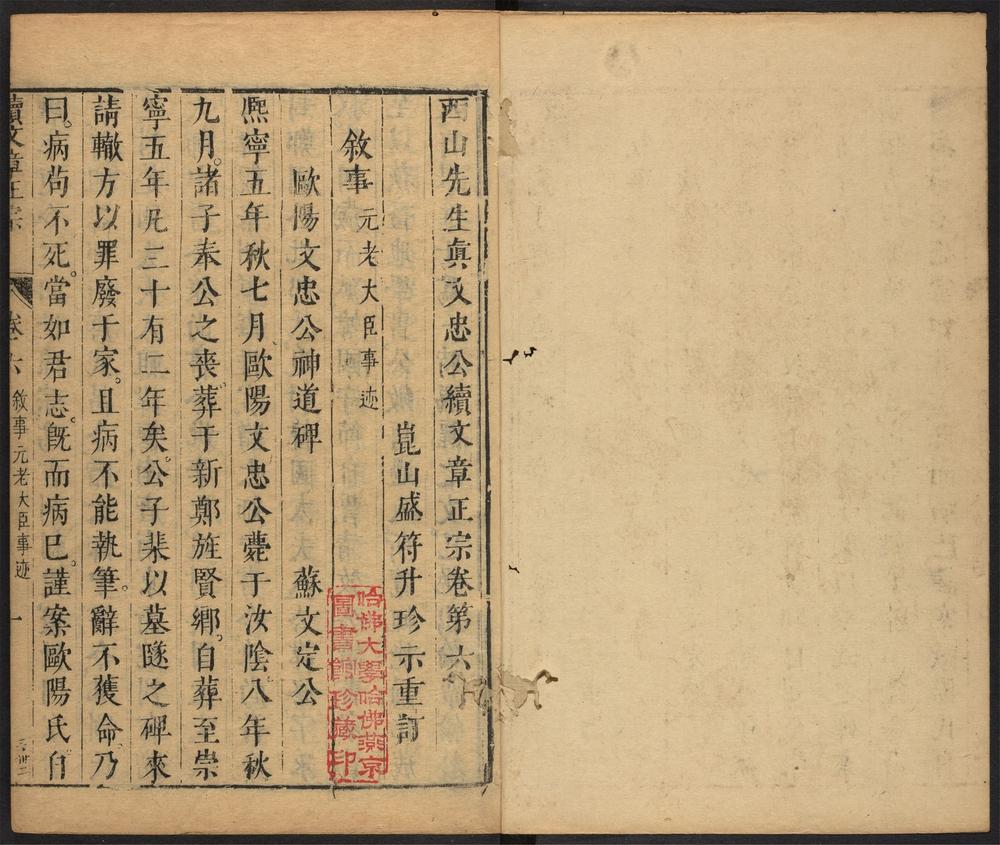 西山先生真文忠公續文章正宗卷第六
崑山盛符升珍示重訂
敘事 元老大臣事迹
歐陽文忠公神道碑 蘇文定公
熈寧五年秋七月歐陽文忠公薨于汝陰八年秋
九月。諸子奉公之喪葬于新鄭旌賢鄉。自葬至崇
寧五年凡三十有二年矣。公子棐以墓隧之碑來
請轍方以罪廢于家。且病不能執筆。辭不獲命。乃
曰。病苟不死。當如君志。旣而病已。謹案歐陽氏自
續文章正宗 卷六 敘事元老大臣事迹 一
哈佛大學哈佛燕京
圖書館珍藏印